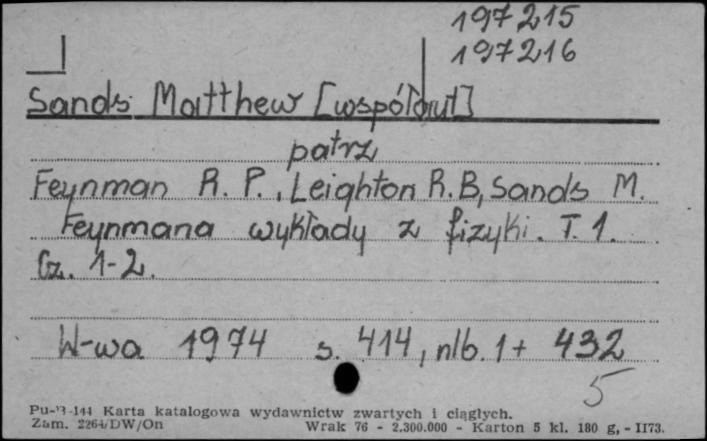 197215
197216
Sands Matthew [współaut]
patrz
Feynman R. P., Leighton R. B, Sands M.
Feynmana wykłady z fizyki. T. 1.
Cz. 1-2.
W-wa 1974 s. 414, nlb. 1 + 432
5
-144 Karta katalogowa wydawnictw zwartych i ciągłych.
Zam. 2264/DW/On Wrak 76 - 2.300.000 - Karton 5 kl. 180 g, - II73.